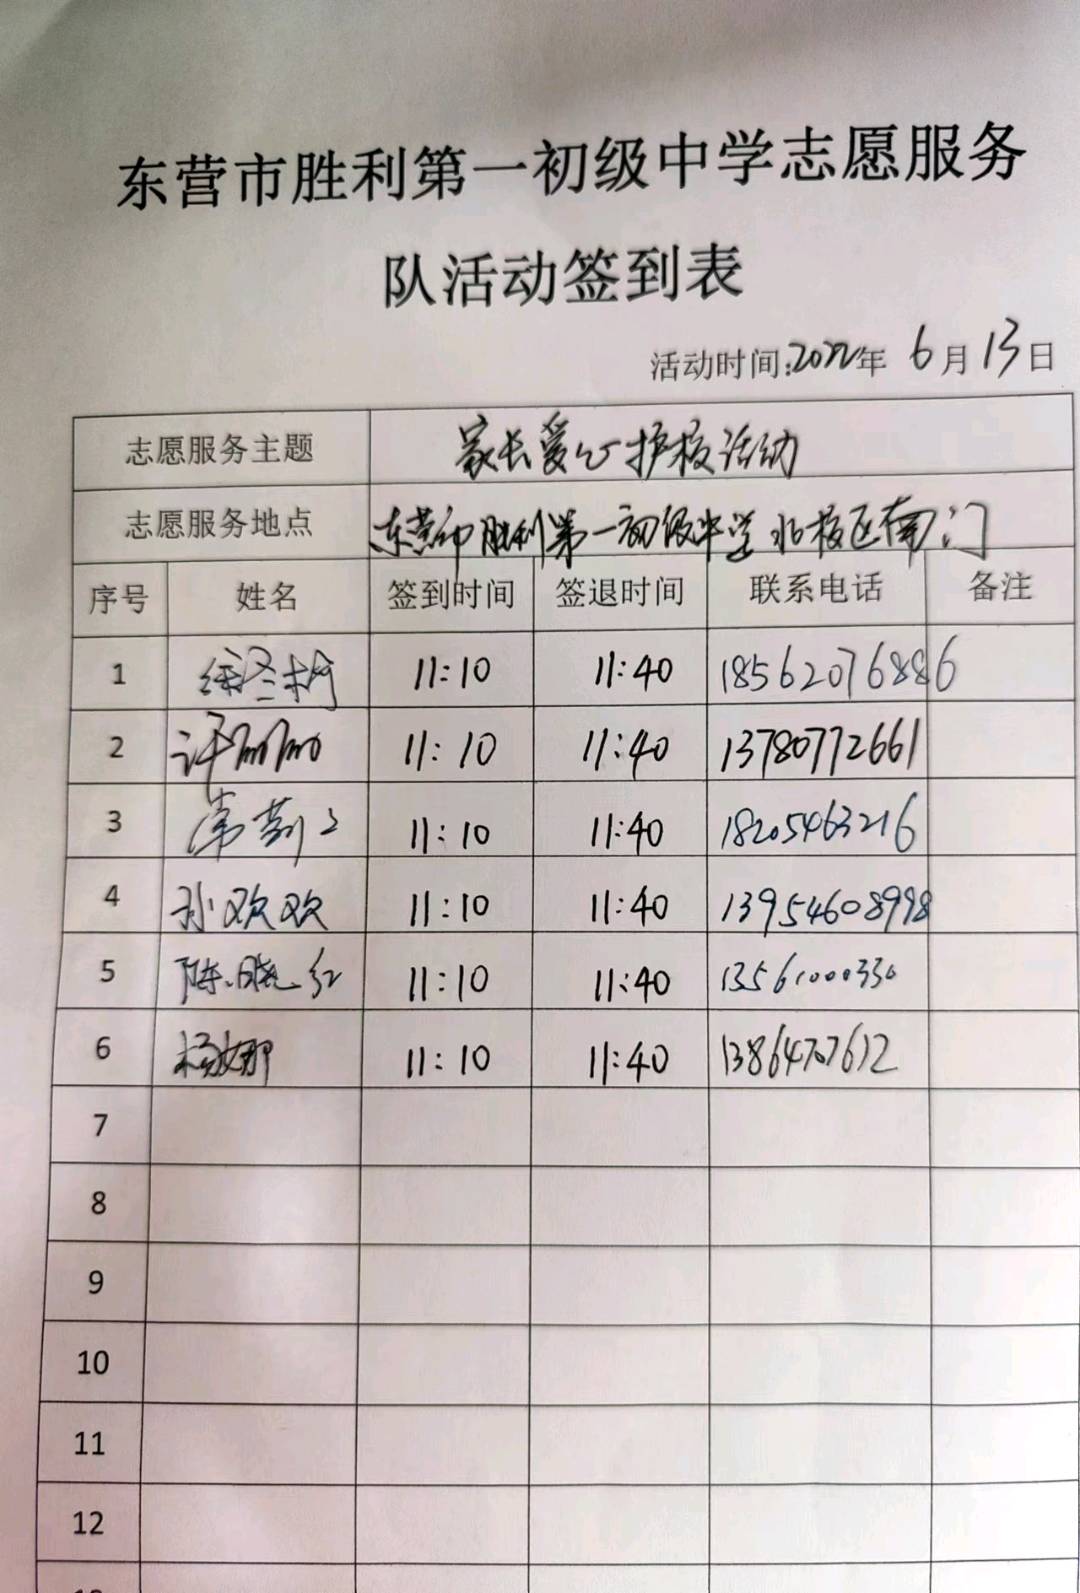 东营市胜利第一初级中学志愿服务
队活动签到表
活动时间:2022年 6月13日
志愿服务主题 家长爱心护校活动
志愿服务地点 东营市胜利第一初级中学北校区南门
序号 姓名 签到时间 签退时间 联系电话 备注
1 11:10 11:40 18562076886
2 许丽丽 11:10 11:40 13780772661
3 11:10 11:40 18205463216
4 孙欢欢 11:10 11:40 13954608998
5 陈晓红 11:10 11:40 13561000330
6 杨娜 11:10 11:40 13864707612
7
8
9
10
11
12